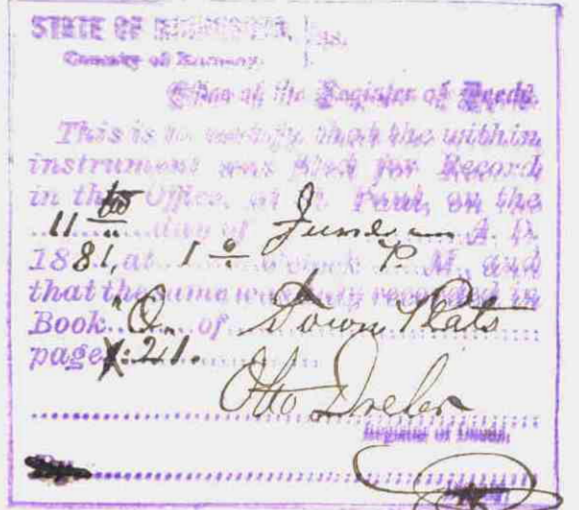 STATE OF MINNESOTA, ss.
County of Ramsey.
Office of the Register of Deeds.
This is to certify that the within
instrument was filed for Record
in this Office, at St. Paul, on the
11th day of June A. D.
1881, at 1 o'clock P. M., and
that the same was duly recorded in
Book "O" of Town Plats
page 21.
Otto Dreher
Register of Deeds.